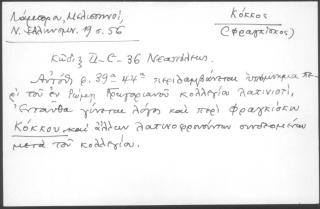 Λάμπρου, Μελιτηνοί,
Ν. Ελληνομν. 19 σ. 56
Κόκκος
(Φραγκίσκος)
Κῶδιξ II-C-36 Νεαπόλεως.
Αὐτόθ. φ. 39α-44α περιλαμβάνεται ὑπόμνημα πε-
ρὶ τοῦ ἐν Ρώμῃ Γρηγοριανοῦ κολλεγίου λατινιστί,
Ἐνταῦθα γίνεται λόγος καὶ περὶ Φραγκίσκου
Κόκκου καὶ ἄλλων λατινοφρονούντων συνδεομένων
μετὰ τοῦ κολλεγίου.